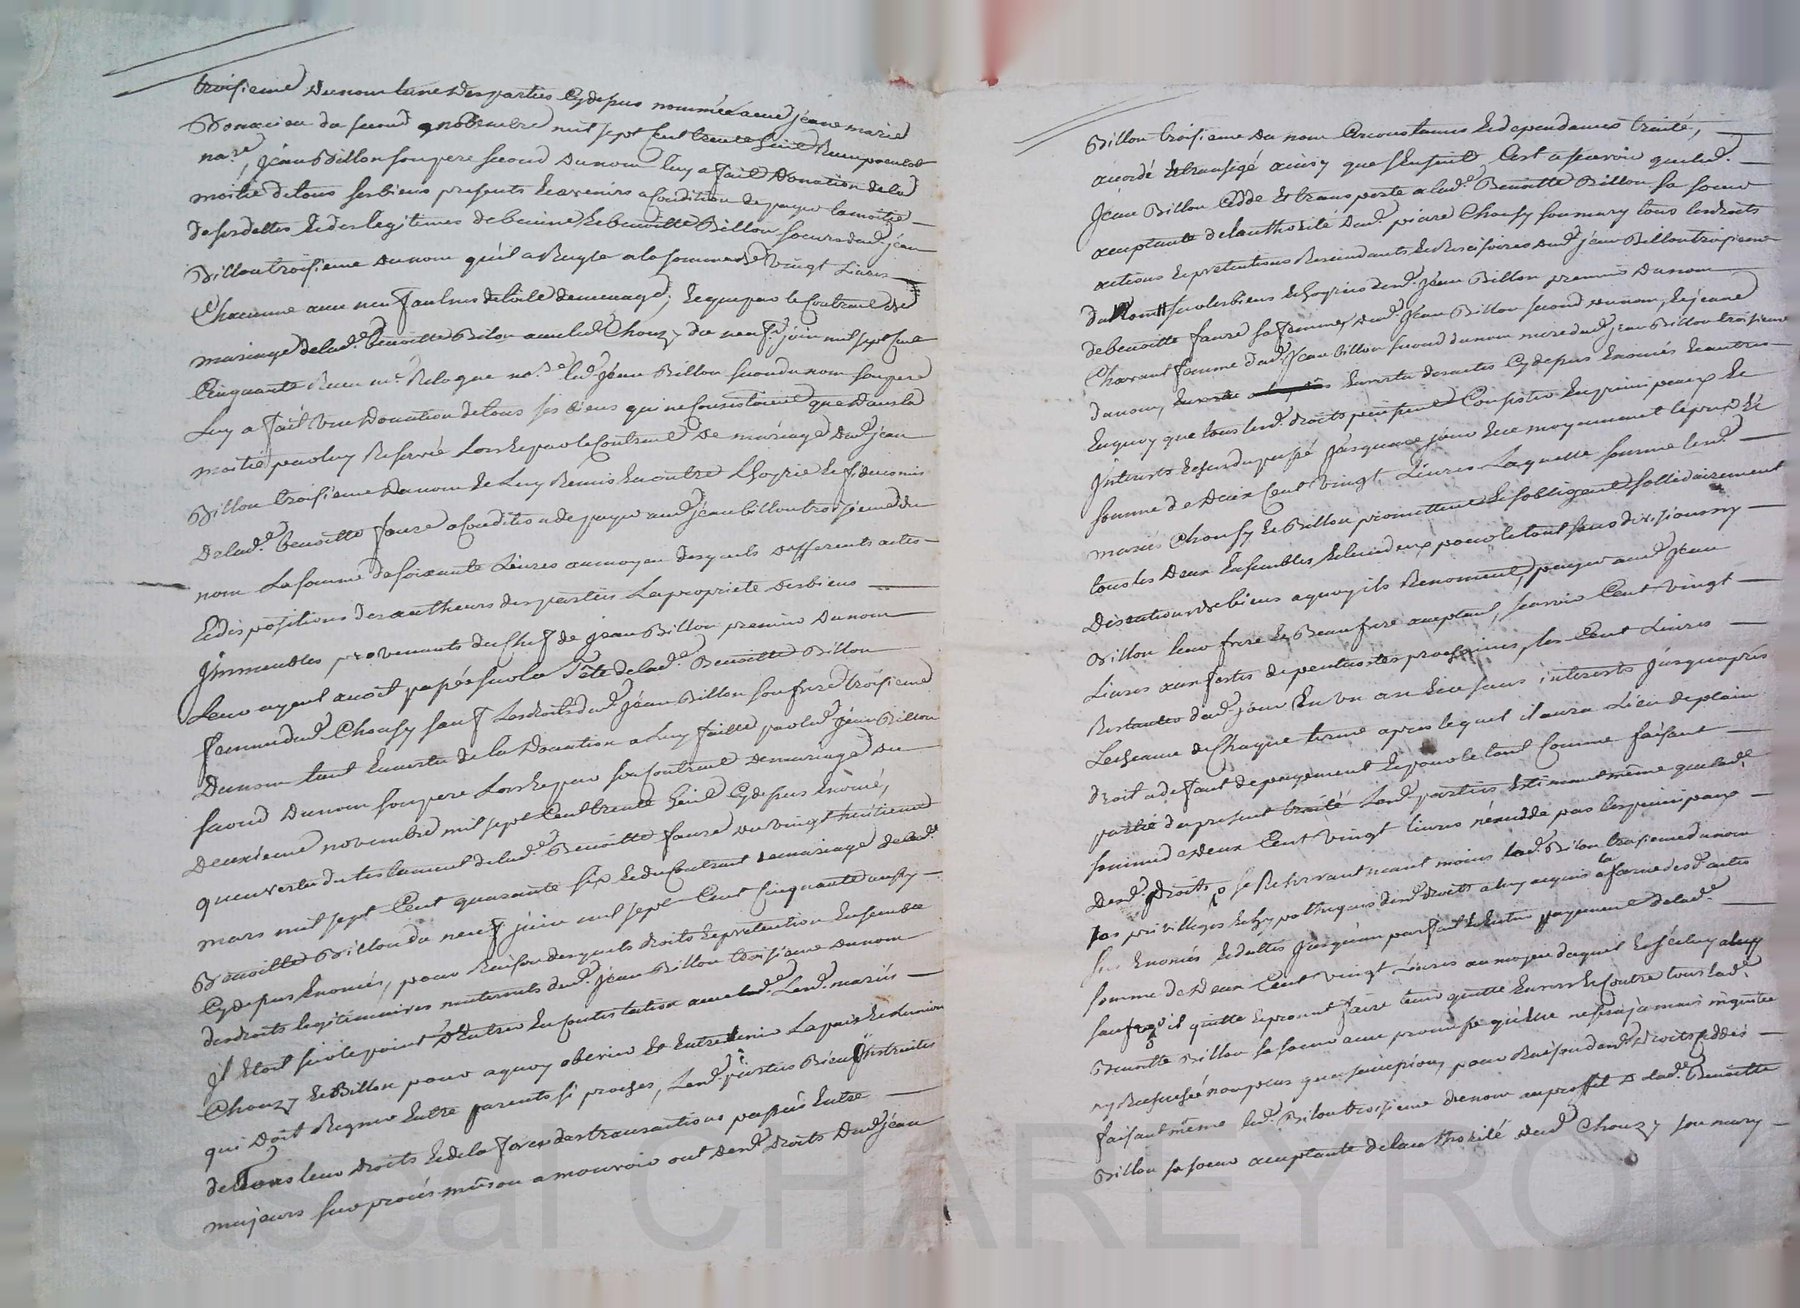 troisieme du nom lune des parties cydepus nommée avec jeane marie
Donacieu du second 9nobembre mil sept cent trente huit Receu par
nore, jean Billon son pere second du nom luy a fait Donation de la
moitié de tous ses biens presents et avenirs a condition de payer la moitié
de ses dettes et des legitimes de et benoitte Billon soeurs dud. jean
Billon troisieme du nom qu'il a Reglé a la somme de vingt Livres
Chacune avec de toile de menage, et que par le Contrait de
mariage de lad. benoitte Bilon avec led. Chouzy du neuf juin mil sept cent
Cinquante Receu me nore led. jean Billon second du nom son pere
Luy a fait une Donation de tous ses biens qui ne Consistoient que dans la
moitié par luy Reservée Lors et par le Contrait de mariage dud. jean
Billon troisieme du nom et luy Remis en outre
de lad. benoitte faure a condition de payer aud. jean billon troisieme du
nom La somme de soixante Livres au moyen desquels differents actes
Et dispositions des autheurs des parties La proprieté des biens
jmmeubles provenants du Chef de jean Billon premier du nom
Leur ayeul auroit passée sur la Tête de lad. Benoitte Billon
femme dud. Chousy sauf Les droits dud. jean Billon son frere troisieme
Du nom tant en vertu de la Donation a Luy faitte par led. jean Billon
second du nom son pere Lors et par son Contrait de mariage du
deuxieme novembre mil sept Cent trente huit Cydepus Enoncé,
qu'en vertu du testament de lad. Benoitte faure du vingt huitieme
mars mil sept Cent quarante six et du Contrait de mariage de lad.
Benoitte Billon du neuf juin mil sept Cent Cinquante aussy
Cydepus Enoncés, pour Raison desquels droits et pretention Ensemble
des droits legitimaires maternels dud. jean Billon troisieme du nom
jl Etoit sur le point d'Entrer En Contestation avec Lesd. mariés
Chouzy et Billon pour a quoy obvier Et Entretenir La paix et L'union
qui doit Regner Entre parents si proches, Lesd. parties Bien jnstruites
de Tous leur droits Et de la force des transactions passés Entre
majeurs sur procés mû ou a mouvoir ont desd. Droits Dud. jean
Billon troisieme du nom Circonstances Et dependances traité,
accordé Et transigé ainsy que s'Ensuit, C'est a sçavoir que led.
Jean Billon Cede Et transporte a lad. Benoitte Billon sa soeur
acceptante de l'authorité dud. pierre Chousy son mary tous les droits
actions Et pretentions Rescindants et Rescisoires dud. jean Billon troisieme
du nom sur les biens et dud. jean Billon premier du nom
de benoitte faure sa femme, dud. jean Billon second du nom, et jeane
femme dud. jean billon second du nom mere dud. jean Billon troisieme
du nom, En vertu des actes Cydepus Enoncés Et autres
En quoy que tous lesd. droits puissent Consister En principaux Et
jnterests Echus du passé jusqu'a ce jour Et ce moyenant le prix Et
somme de Deux Cent vingt Livres Laquelle somme lesd.
mariés Chousy Et Billon promettent Et s'obligent sollidairement
tous les Deux Ensembles et l'un d'eux pour le tout sans division ny
Discution de biens a quoy ils Renoncent, payer aud. jean
Billon leur frere Et Beau frere acceptant, sçavoir Cent vingt
Livres aux fêtes de pentecotes prochaines, les Cent Livres
Restantes dud. jour En un an Et ce sans interests jusqu'apres
L'echeance de Chaque terme apres lequel il aura Lieu de plain
droit a defaut de payement Et pour le tout Comme faisant
partie du present traité Lesd. parties Estiment même que lad.
somme de Deux Cent vingt livres n'excede pas les principaux
desd. Droits, se Reservant neant moins led. Bilon troisieme du nom
les privileges Et hypotheques desd. droits a luy acquis a la forme desd. actes
sus Enoncés Et dattés jusqu'au parfait Et Entier payement de lad.
somme de Deux Cent vingt Livres au moyen duquel
il quitte Et promet faire tenir quitte Envers Et Contre tous lad.
Benoitte Billon sa soeur avec promesse qu'Elle ne sera jamais inquietée
ny Recherchée non plus que pour Raison desd. Droits Cedés
faisant même led. Bilon troisieme du nom au proffit de lad. Benoitte
Billon sa soeur acceptante de l'authorité dud. Chouzy son mary
Pascal CHAREYRON